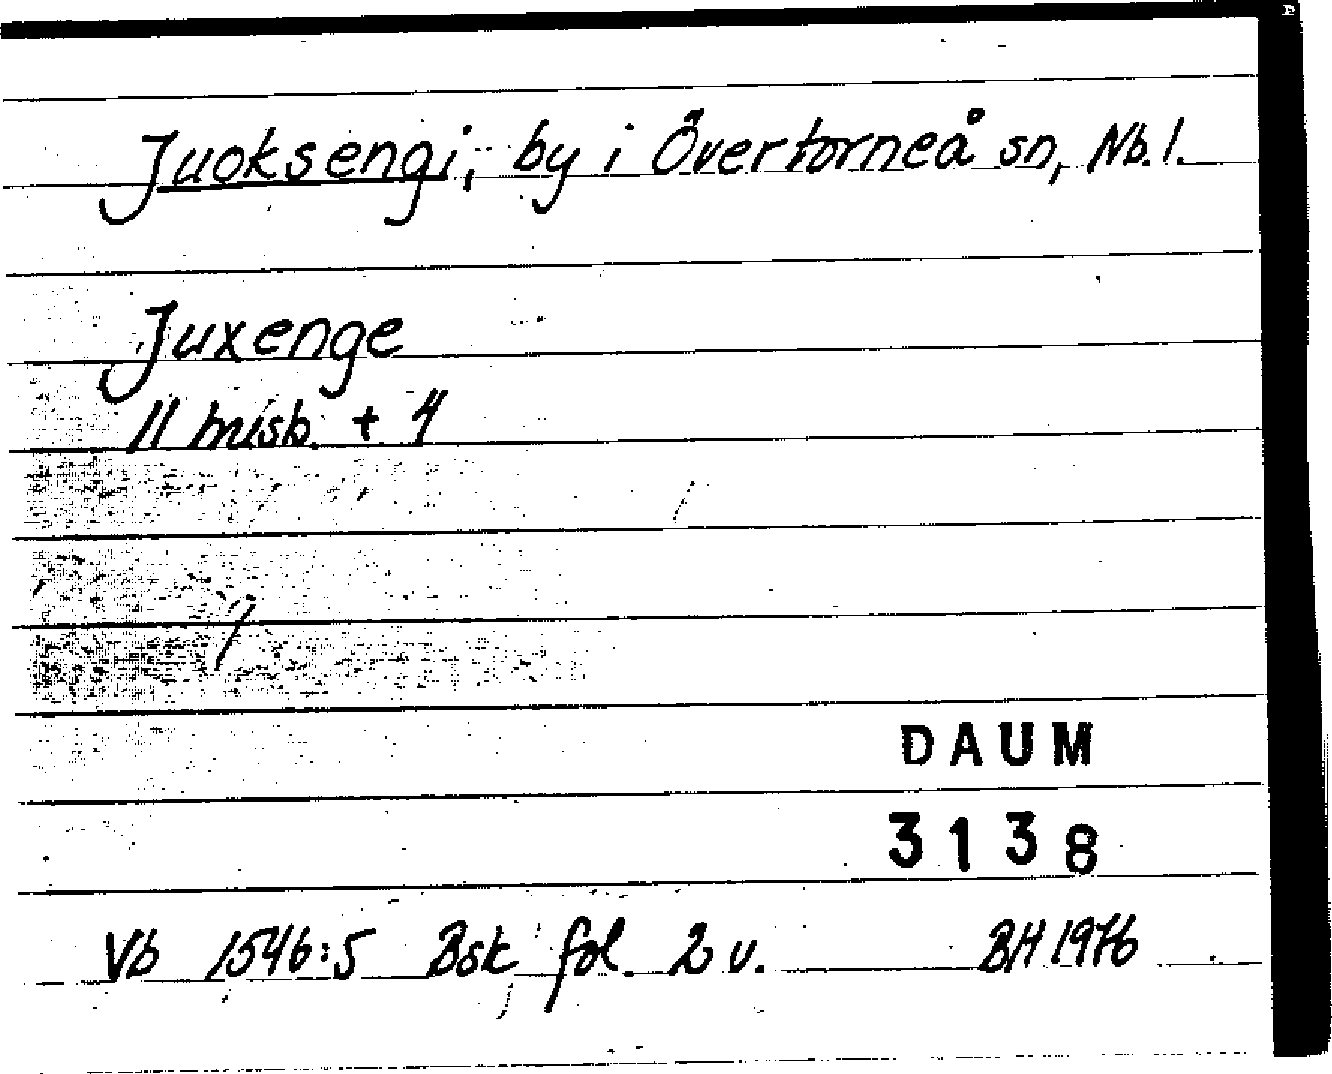 Juoksengi, by i Övertorneå sn, Nb. l.
Juxenge
11 + 4
DAUM
3138
Vb 1546:5 Bsk fol. 2 v. BH 1976